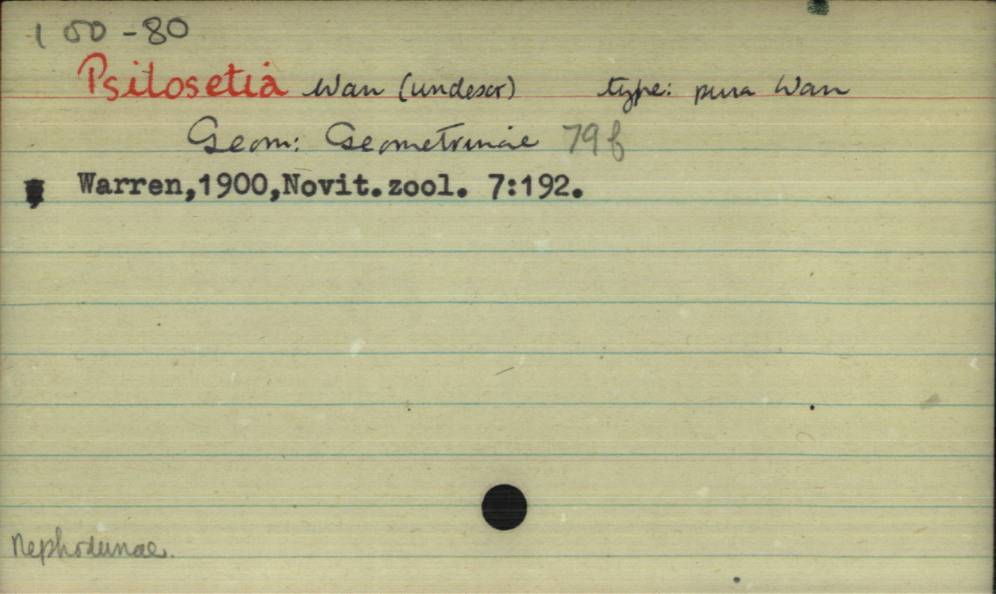 150-80
Psilosetia Warr (undescr) type: pura Warr
Geom: Geometrinae 79f
Warren,1900,Novit.zool. 7:192.
Nephodunae.